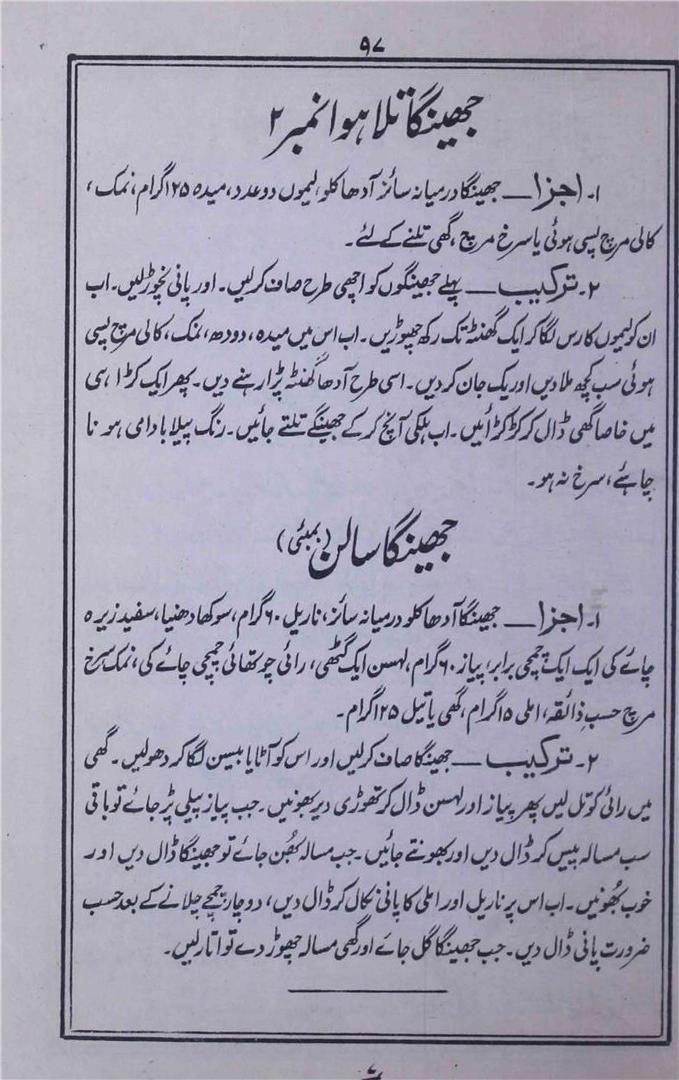 ۹۷
جھینگا تلا ہوا نمبر ۲
۱۔ اجزا ــــ جھینگا درمیانہ سائز آدھا کلو، لیموں دو عدد، میدہ ۱۲۵ گرام، نمک،
کالی مرچ پسی ہوئی یا سرخ مرچ، گھی تلنے کے لئے۔
۲۔ ترکیب ــــ پہلے جھینگوں کو اچھی طرح صاف کرلیں۔ اور پانی نچوڑ لیں۔ اب
ان کو لیموں کا رس لگا کر ایک گھنٹہ تک رکھ چھوڑیں۔ اب اس میں میدہ، دودھ، نمک، کالی مرچ پسی
ہوئی سب کچھ ملا دیں اور یک جان کر دیں۔ اسی طرح آدھا گھنٹہ پڑا رہنے دیں۔ پھر ایک کڑاہی
میں خاصا گھی ڈال کر کڑکڑائیں۔ اب ہلکی آنچ کر کے جھینگے تلتے جائیں۔ رنگ پیلا بادامی ہونا
چاہئے، سرخ نہ ہو۔
جھینگا سالن (بمبئی)
۱۔ اجزا ــــ جھینگا آدھا کلو درمیانہ سائز، ناریل ۶۰ گرام، سوکھا دھنیا، سفید زیرہ
چائے کی ایک ایک چمچی برابر، پیاز ۶۰ گرام، لہسن ایک گٹھی، رائی چوتھائی چمچی چائے کی، نمک سرخ
مرچ حسب ذائقہ، املی ۱۵ گرام، گھی یا تیل ۱۲۵ گرام۔
۲۔ ترکیب ــــ جھینگا صاف کرلیں اور اس کو آٹا یا بیسن لگا کر دھولیں۔ گھی
میں رائی کو تل لیں پھر پیاز اور لہسن ڈال کر تھوڑی دیر بھونیں۔ جب پیاز پیلی پڑ جائے تو باقی
سب مسالہ پیس کر ڈال دیں اور بھونتے جائیں۔ جب مسالہ بھُن جائے تو جھینگا ڈال دیں اور
خوب بھُونیں۔ اب اس پر ناریل اور املی کا پانی نکال کر ڈال دیں، دو چار چمچے چلانے کے بعد حسب
ضرورت پانی ڈال دیں۔ جب جھینگا گل جائے اور گھی مسالہ چھوڑ دے تو اتار لیں۔